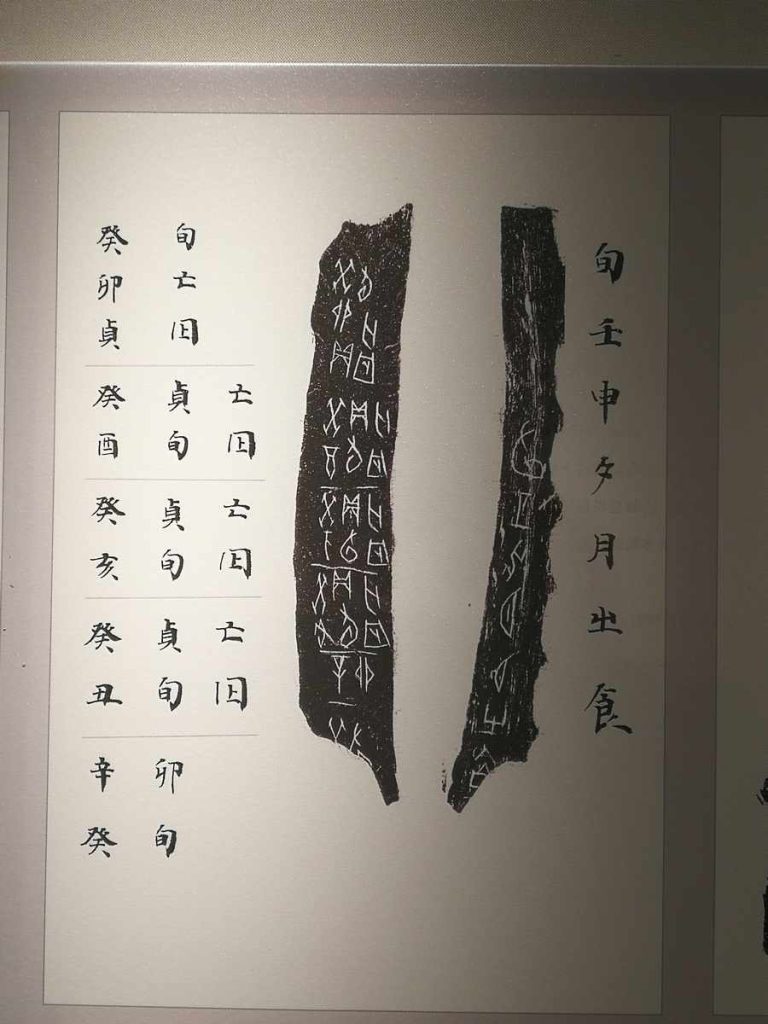 旬壬申夕月㞢食
癸卯貞
旬亡𡆥
癸酉
貞旬
亡𡆥
癸亥
貞旬
亡𡆥
癸丑
貞旬
亡𡆥
辛癸
卯旬